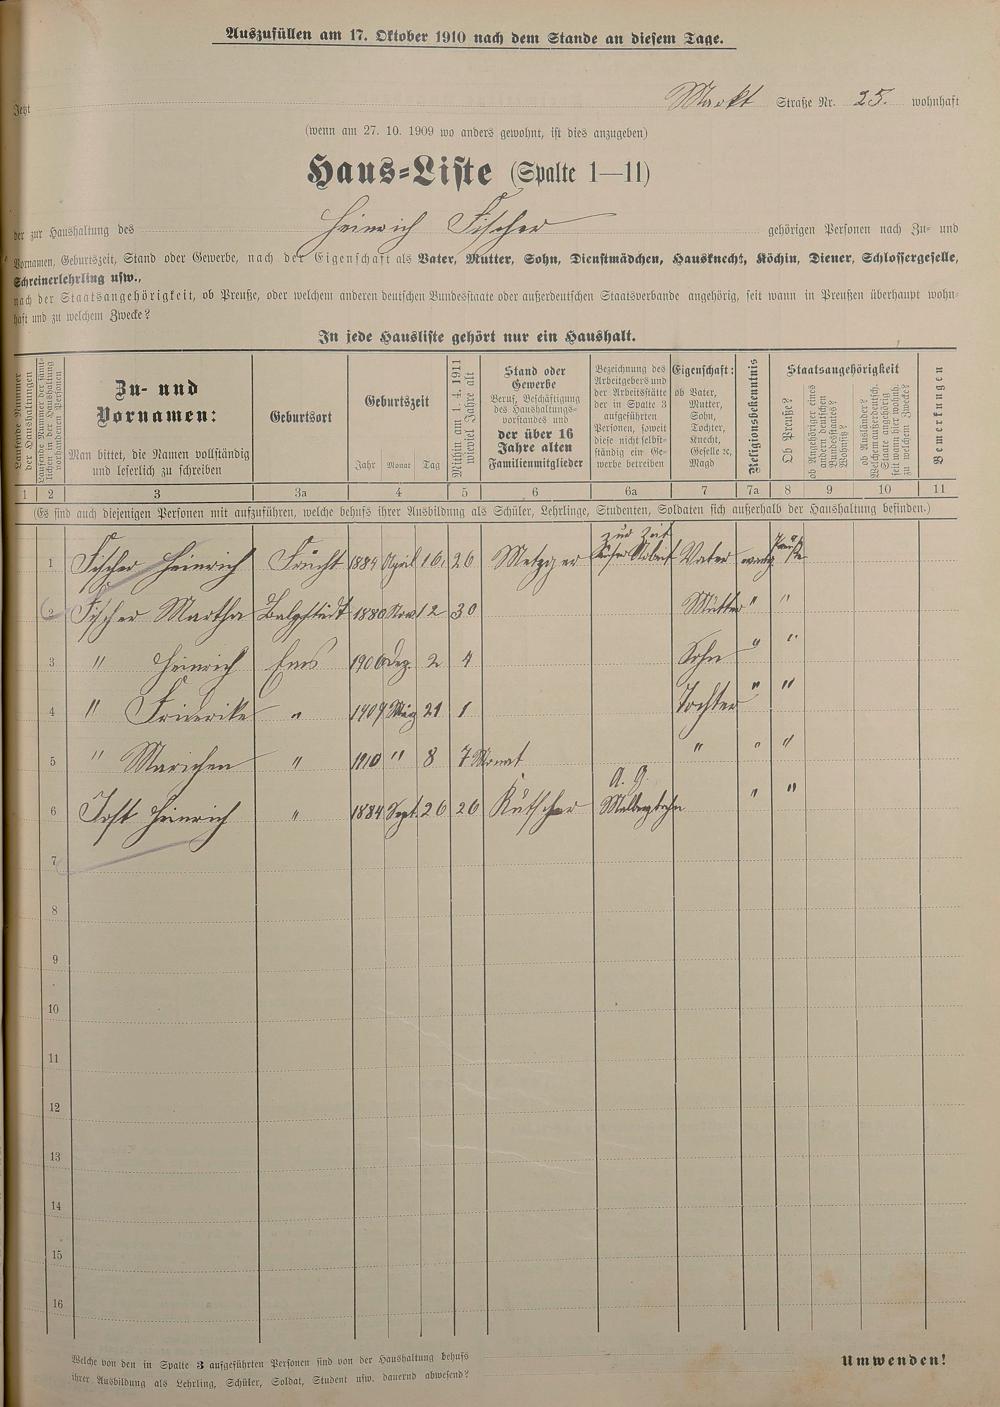 Auszufüllen am 17. Oktober 1910 nach dem Stande an diesem Tage.
Jetzt Markt Straße Nr. 25. wohnhaft
(wenn am 27. 10. 1909 wo anders gewohnt, ist dies anzugeben)
Haus-Liste (Spalte 1—11)
der zur Haushaltung des Heinrich Fischer gehörigen Personen nach Zu- und
Vornamen, Geburtszeit, Stand oder Gewerbe, nach der Eigenschaft als Vater, Mutter, Sohn, Dienstmädchen, Hausknecht, Köchin, Diener, Schlossergeselle,
Schreinerlehrling usw.,
nach der Staatsangehörigkeit, ob Preuße, oder welchem anderen deutschen Bundesstaate oder außerdeutschen Staatsverbande angehörig, seit wann in Preußen überhaupt wohn-
haft und zu welchem Zwecke?
In jede Hausliste gehört nur ein Haushalt.
Laufende Nummer
der Haushaltungen
Laufende Nummer der sämt-
lichen in der Haushaltung
vorhandenen Personen
Zu- und
Vornamen:
Man bittet, die Namen vollständig
und leserlich zu schreiben
Geburtsort
Geburtszeit
Jahr Monat Tag
Mithin am 1. 4. 1911
wieviel Jahre alt
Stand oder
Gewerbe
Beruf, Beschäftigung
des Haushaltungs-
vorstandes und
der über 16
Jahre alten
Familienmitglieder
Bezeichnung des
Arbeitgebers und
der Arbeitsstätte
der in Spalte 3
aufgeführten
Personen, soweit
diese nicht selbst-
ständig ein Ge-
werbe betreiben
Eigenschaft:
ob Vater,
Mutter,
Sohn,
Tochter,
Knecht,
Geselle ꝛc,
Magd
Religionsbekenntnis
Staatsangehörigkeit
Ob Preuße?
ob Angehöriger eines
andern deutschen
Bundesstaates?
Wohnsitz?
ob Ausländer?
Welchem außerdeutsch.
Staate angehörig
seit wann hier wohnh.
zu welchem Zwecke?
Bemerkungen
1 2 3 3a 4 5 6 6a 7 7a 8 9 10 11
(Es sind auch diejenigen Personen mit aufzuführen, welche behufs ihrer Ausbildung als Schüler, Lehrlinge, Studenten, Soldaten sich außerhalb der Haushaltung befinden.)
zur Zeit
1 Fischer Heinrich Frücht 1884 April 16. 26 Metzger Vater Preuße
2 Fischer Martha 1880 Nov 12 30 Mutter " "
3 " Heinrich Ems 1906 Dez. 2 4 Sohn " "
4 " Friederike " 1909 21 1 Tochter " "
5 " Mariechen " 1910 " 8 7 Monat " " "
6 Jost Heinrich " 1884 Sept. 26 26 Kutscher Malbergbahn " "
7
8
9
10
11
12
13
14
15
16
Welche von den in Spalte 3 aufgeführten Personen sind von der Haushaltung behufs
ihrer Ausbildung als Lehrling, Schüler, Soldat, Student usw. dauernd abwesend?
Umwenden!